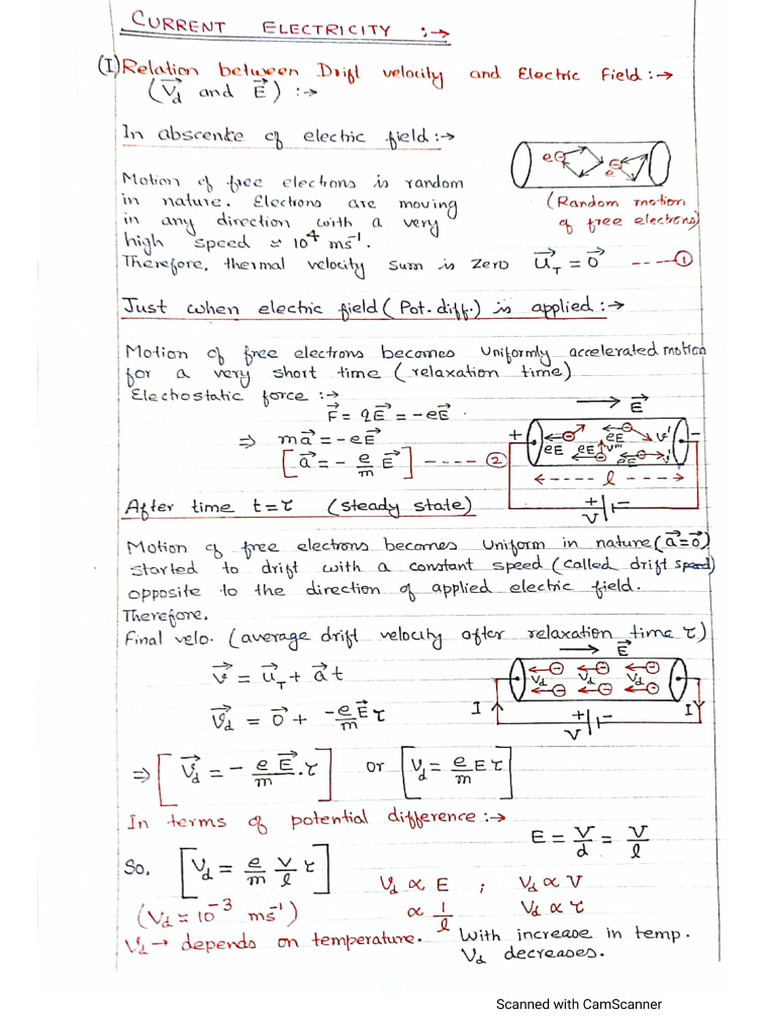 CURRENT ELECTRICITY :→
(I) Relation between Drift velocity and Electric Field :→
(V⃗d and E⃗) :→
In abscence of electric field :→
Motion of free electrons is random
in nature. Electrons are moving
in any direction with a very
high speed ≈ 10⁴ ms⁻¹.
e⊖ e⊖
(Random motion
of free electrons)
Therefore, thermal velocity sum is zero u⃗T = 0⃗ ---- ①
Just when electric field (Pot. diff.) is applied :→
Motion of free electrons becomes Uniformly accelerated motion
for a very short time (relaxation time)
Electrostatic force :→
F⃗ = qE⃗ = -eE⃗
⇒ ma⃗ = -eE⃗
[a⃗ = - e/m E⃗] ---- ②
E⃗
+ eE eE eE v''' eE v' v' -
l
+ -
V
After time t = τ (steady state)
Motion of free electrons becomes Uniform in nature (a⃗ = 0⃗)
started to drift with a constant speed (called drift speed)
opposite to the direction of applied electric field.
Therefore,
Final velo. (average drift velocity after relaxation time τ)
v⃗ = u⃗T + a⃗ t
v⃗d = 0⃗ + -e/m E⃗ τ
E⃗
Vd Vd Vd
I I
+ -
V
⇒ [V⃗d = - eE⃗/m . τ] or [Vd = e/m E τ]
In terms of potential difference :→
E = V/d = V/l
So, [Vd = e/m V/l τ]
Vd ∝ E ; Vd ∝ V
(Vd ≈ 10⁻³ ms⁻¹) ∝ 1/l Vd ∝ τ
Vd → depends on temperature. With increase in temp.
Vd decreases.
Scanned with CamScanner